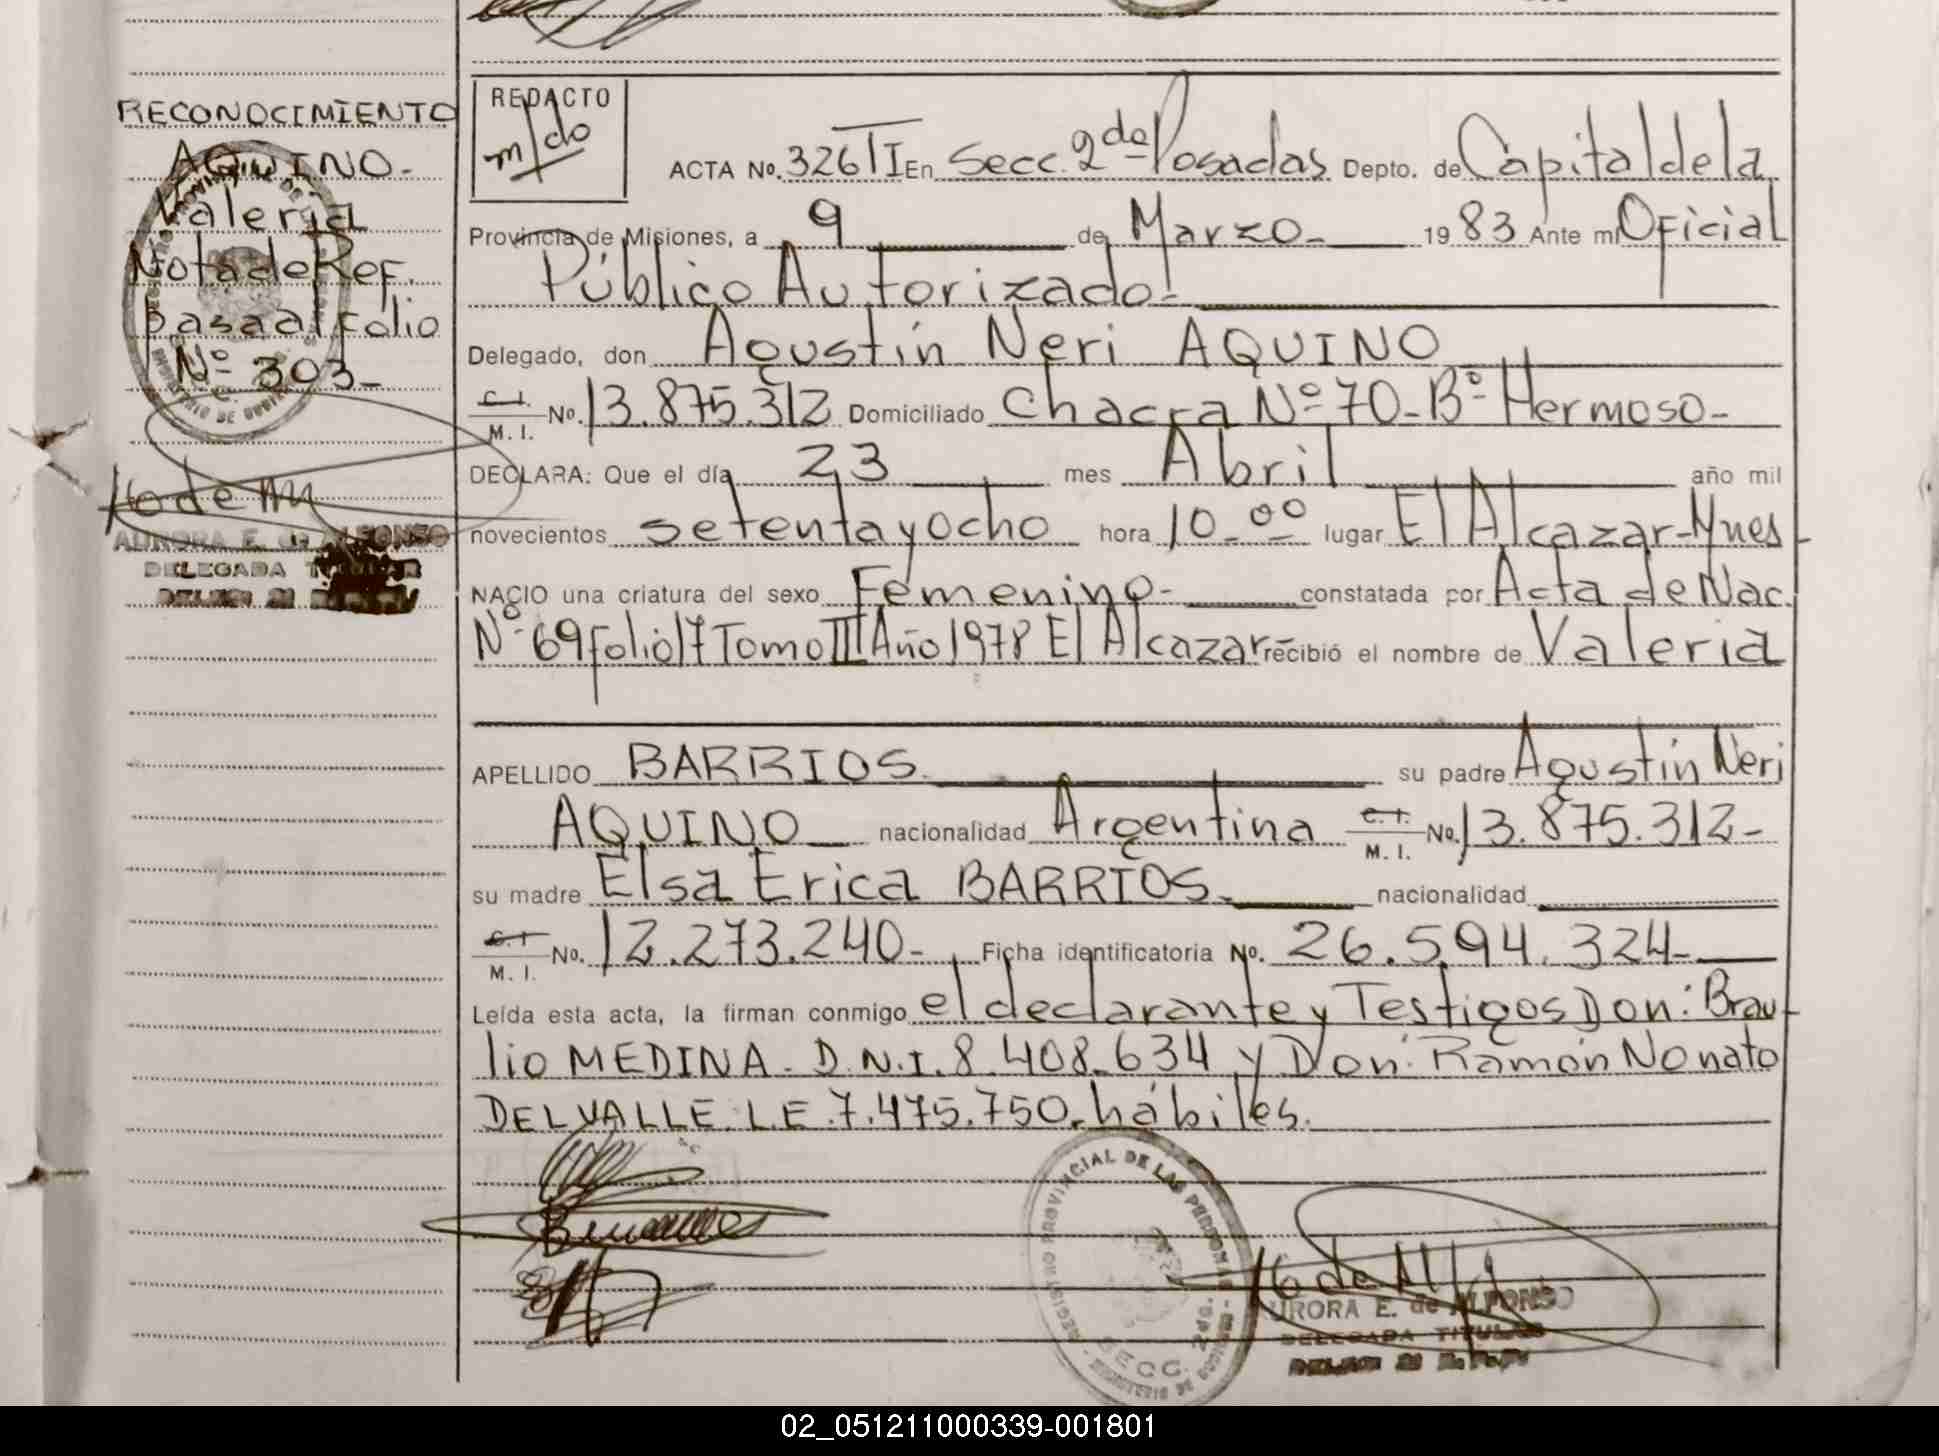 RECONOCIMIENTO
AQUINO-
Valeria
Nota de Ref.
Pasa al Folio
Nº 303-
AURORA E. de ALFONSO
DELEGADA TITULAR
REDACTO
ACTA No. 326 TI En Secc. 2da Posadas Depto. de Capital de la
Provincia de Misiones, a 9 de Marzo- 1983 Ante mi Oficial
Público Autorizado!
Delegado, don Agustín Neri AQUINO
C. I. M. I. No. 13.875.312 Domiciliado Chacra Nº 70- Bº Hermoso-
DECLARA: Que el día 23 mes Abril año mil
novecientos setenta y ocho hora 10.00 lugar El Alcazar-Mnes
NACIO una criatura del sexo Femenino- constatada por Acta de Nac.
Nº 69 folio 17 Tomo III Año 1978 El Alcazar recibió el nombre de Valeria
APELLIDO BARRIOS su padre Agustín Neri
AQUINO nacionalidad Argentina C. I. M. I. No. 13.875.312-
su madre Elsa Erica BARRIOS- nacionalidad
C. I. M. I. No. 12.273.240- Ficha identificatoria No. 26.594.324-
Leída esta acta, la firman conmigo el declarante y Testigos Don: Brau-
lio MEDINA- D.N.I. 8.408.634 y Don: Ramón Nonato
DELVALLE. L.E 7.475.750. hábiles.
REGISTRO PROVINCIAL DE LAS PERSONAS
SECC. 2da.
AURORA E. de ALFONSO
DELEGADA TITULAR
02_051211000339-001801